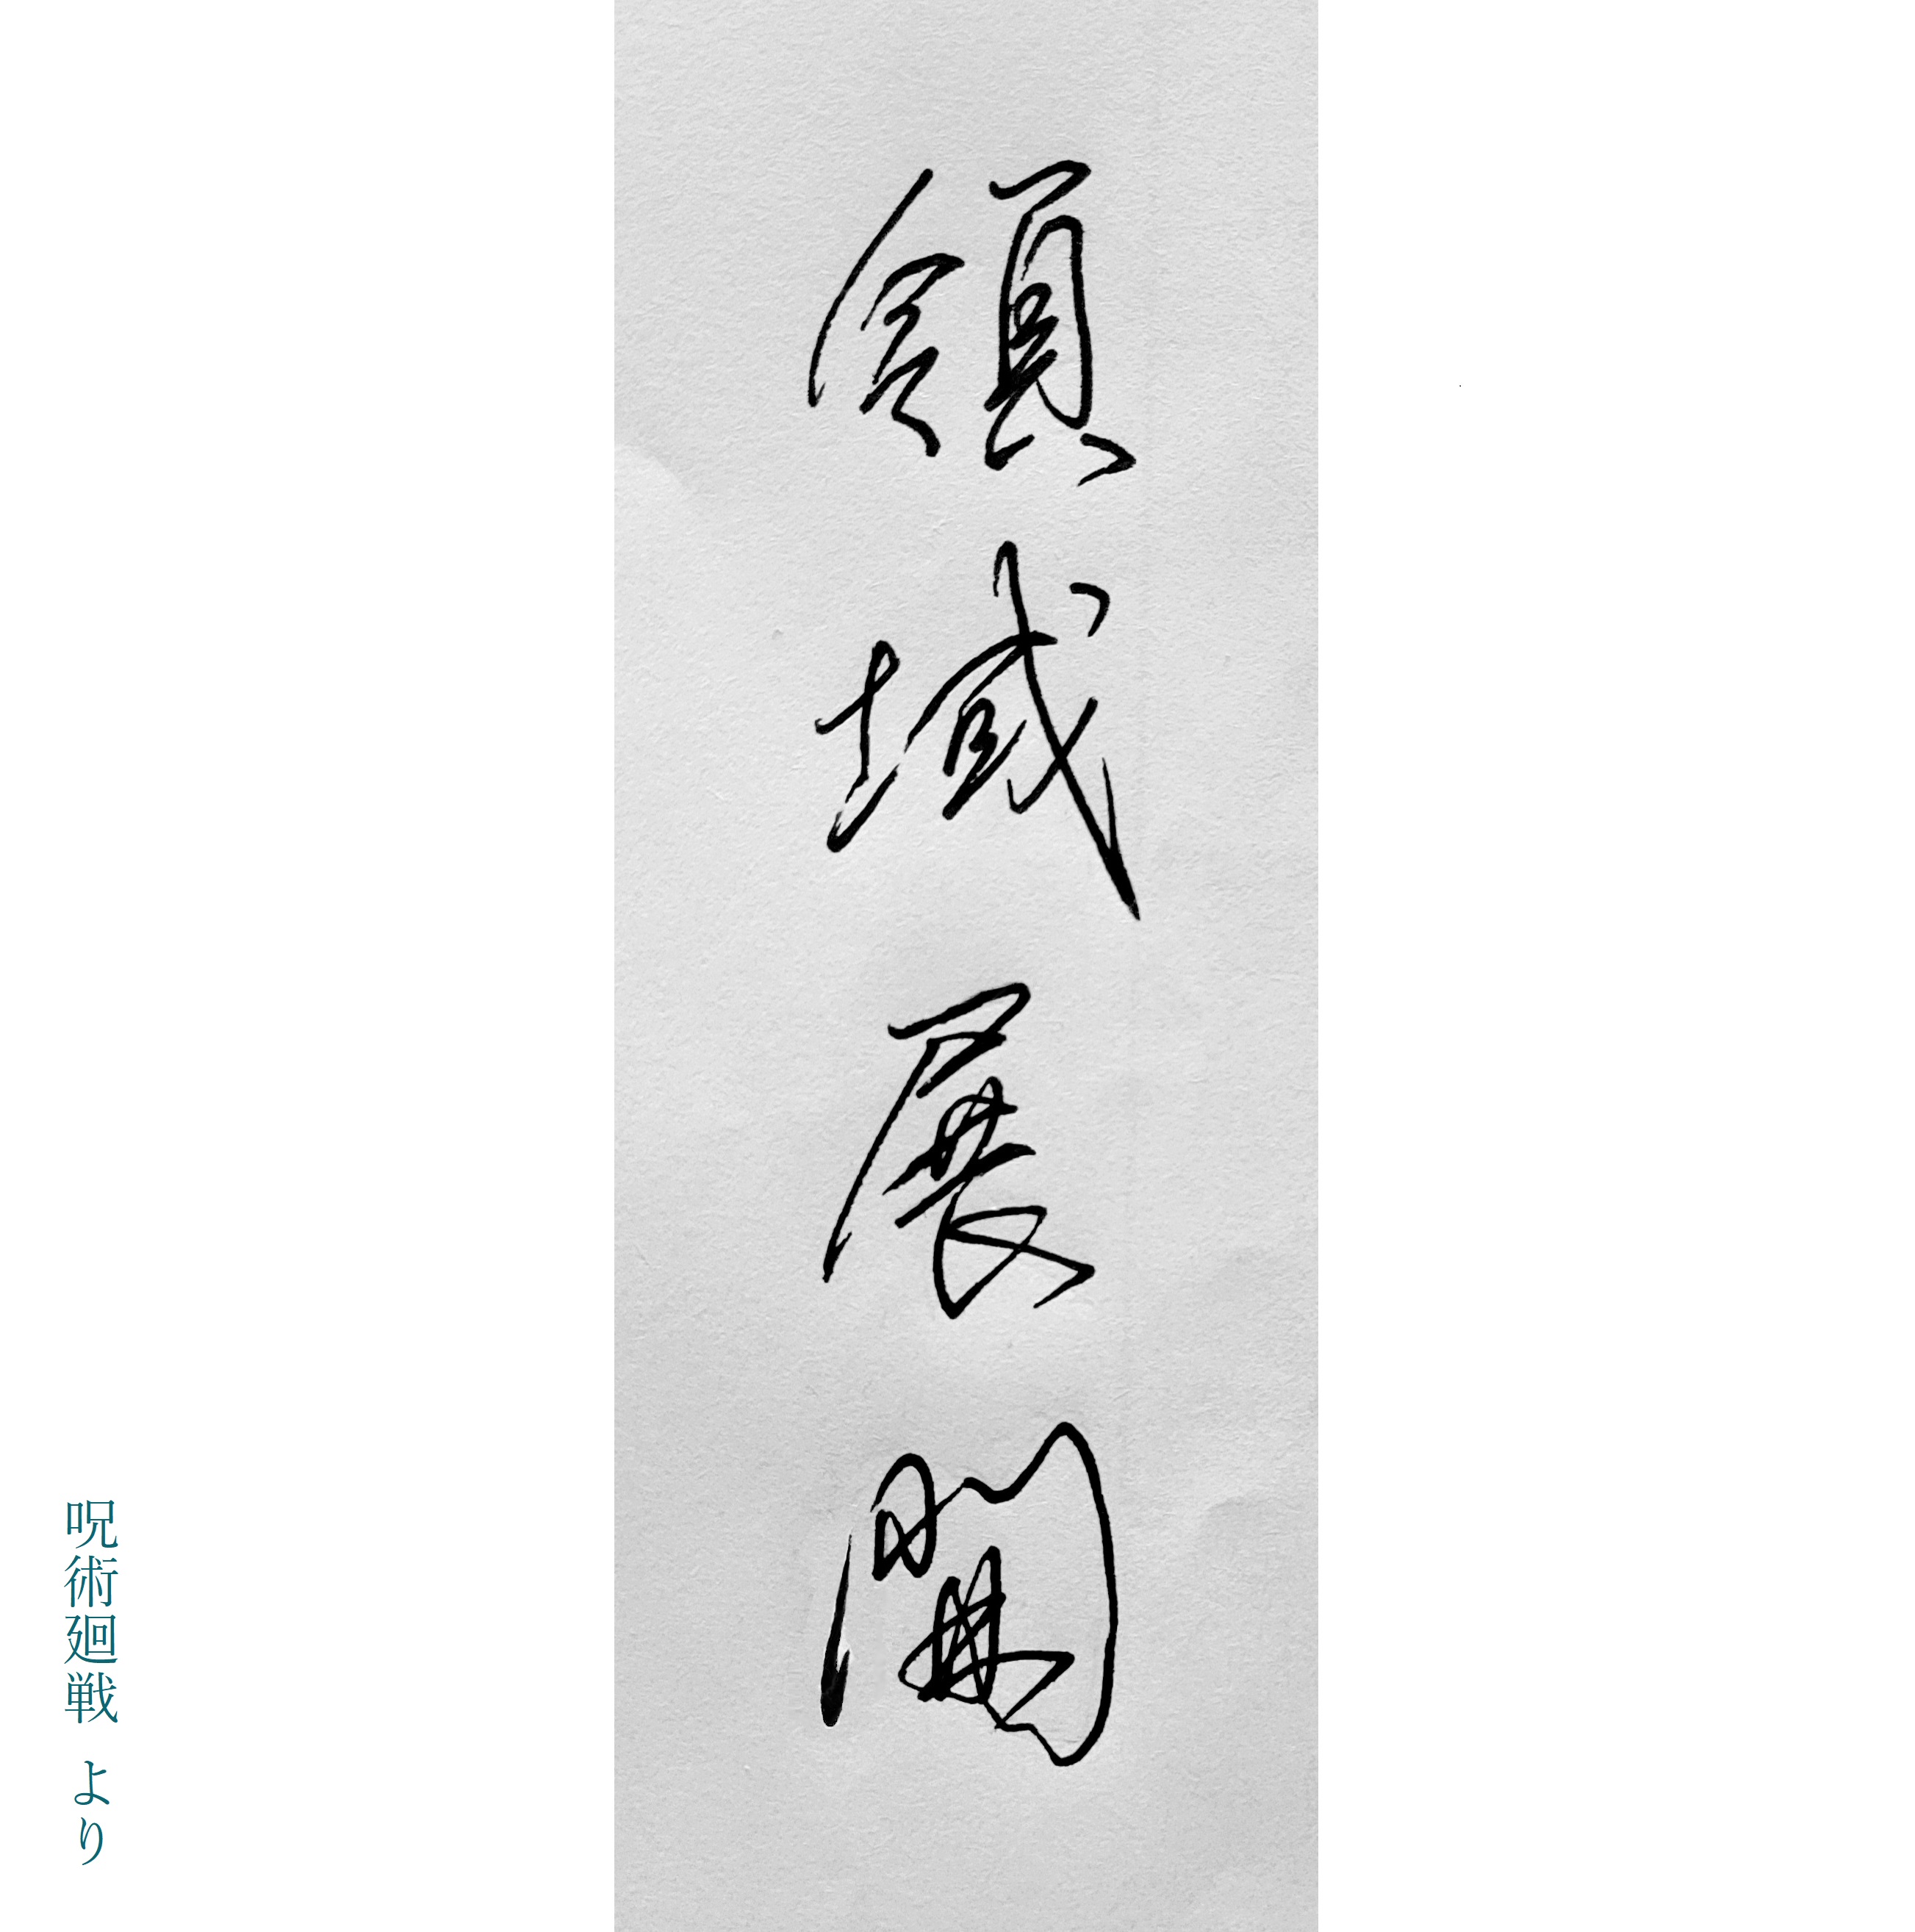 領域展開
呪術廻戦 より